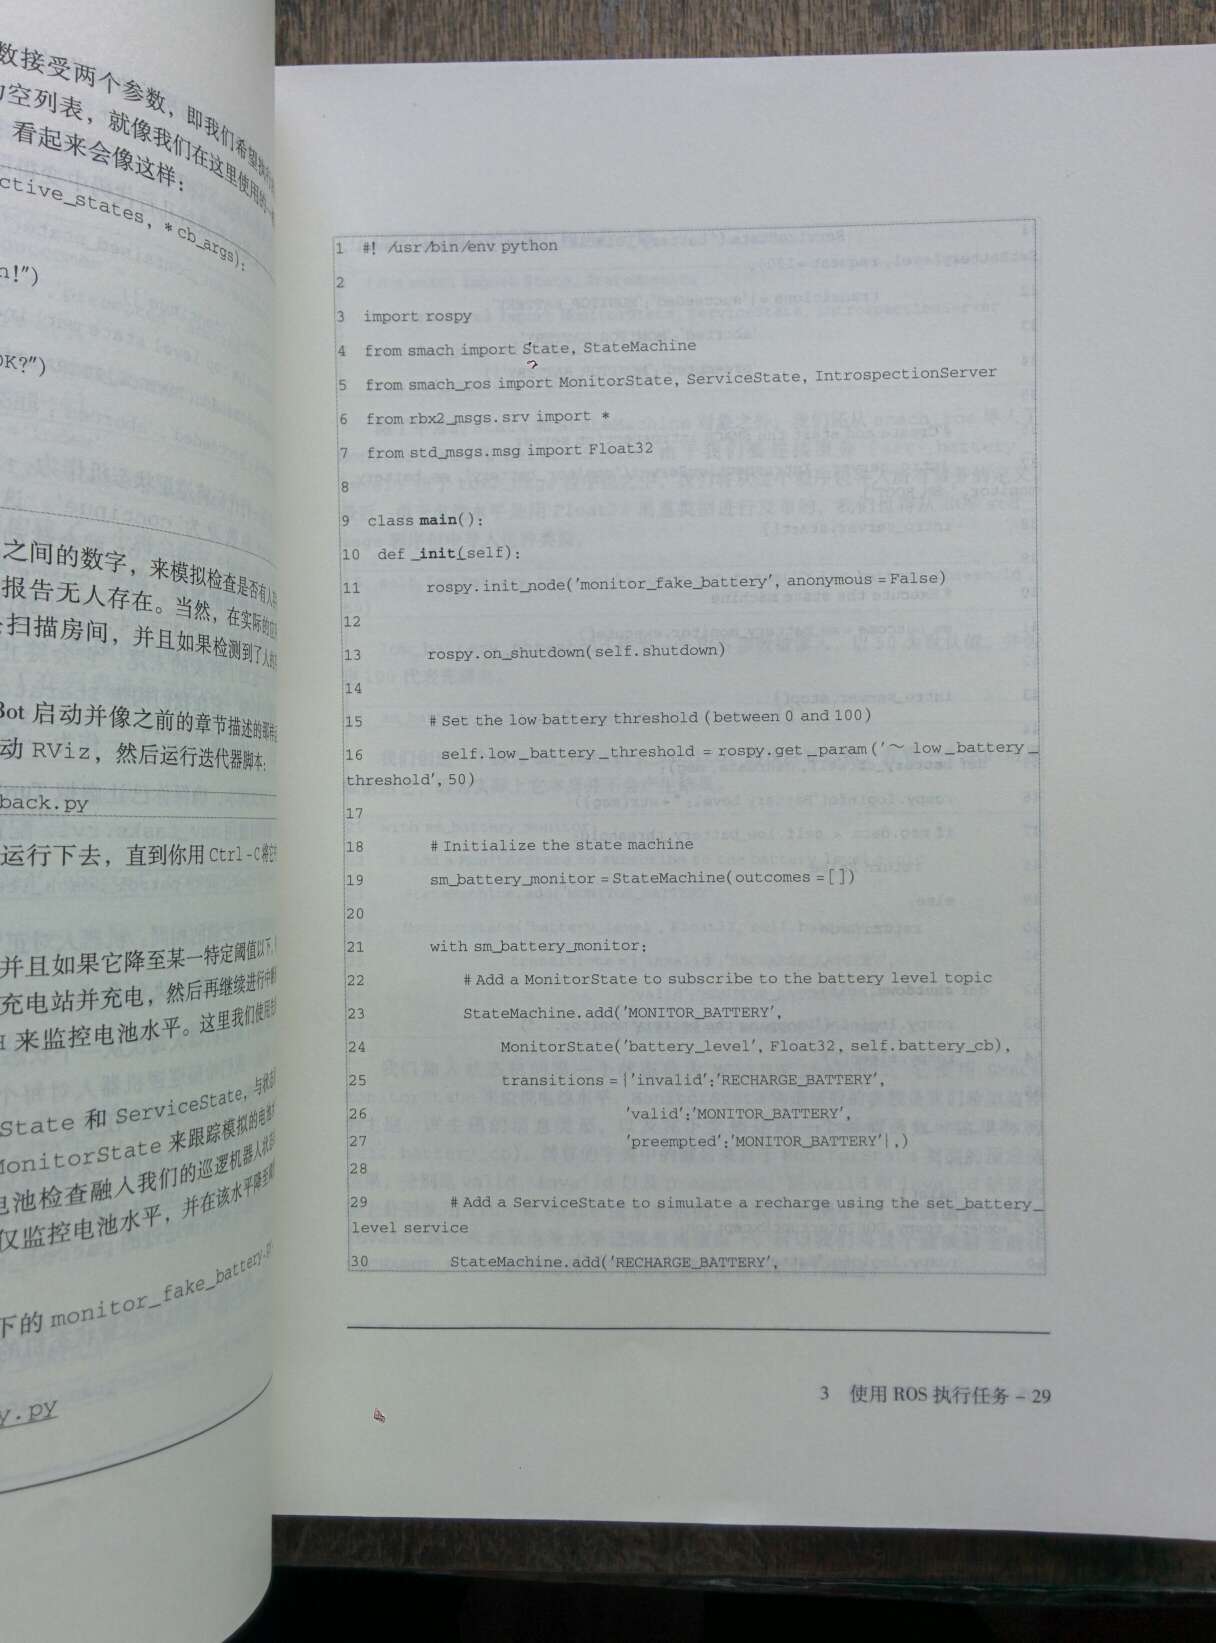 数接受两个参数，即我们希望执行
空列表，就像我们在这里使用的一
看起来会像这样：
ctive_states, *cb_args):
n!")
OK?")
之间的数字，来模拟检查是否有人
报告无人存在。当然，在实际的应
扫描房间，并且如果检测到了人的
Bot 启动并像之前的章节描述的那样
动 RViz，然后运行迭代器脚本：
back.py
运行下去，直到你用 Ctrl-C 将它
并且如果它降至某一特定阈值以下，
充电站并充电，然后再继续进行中断
来监控电池水平。这里我们使用
State 和 ServiceState，与状态
MonitorState 来跟踪模拟的电池
电池检查融入我们的巡逻机器人状态
仅监控电池水平，并在该水平降至
下的 monitor_fake_battery.py
y.py
1 #! /usr/bin/env python
2
3 import rospy
4 from smach import State, StateMachine
5 from smach_ros import MonitorState, ServiceState, IntrospectionServer
6 from rbx2_msgs.srv import *
7 from std_msgs.msg import Float32
8
9 class main():
10 def _init_(self):
11 rospy.init_node('monitor_fake_battery', anonymous=False)
12
13 rospy.on_shutdown(self.shutdown)
14
15 # Set the low battery threshold (between 0 and 100)
16 self.low_battery_threshold = rospy.get_param('～ low_battery_
threshold', 50)
17
18 # Initialize the state machine
19 sm_battery_monitor = StateMachine(outcomes=[])
20
21 with sm_battery_monitor:
22 # Add a MonitorState to subscribe to the battery level topic
23 StateMachine.add('MONITOR_BATTERY',
24 MonitorState('battery_level', Float32, self.battery_cb),
25 transitions = |'invalid':'RECHARGE_BATTERY',
26 'valid':'MONITOR_BATTERY',
27 'preempted':'MONITOR_BATTERY'|,)
28
29 # Add a ServiceState to simulate a recharge using the set_battery_
level service
30 StateMachine.add('RECHARGE_BATTERY',
3 使用 ROS 执行任务 – 29